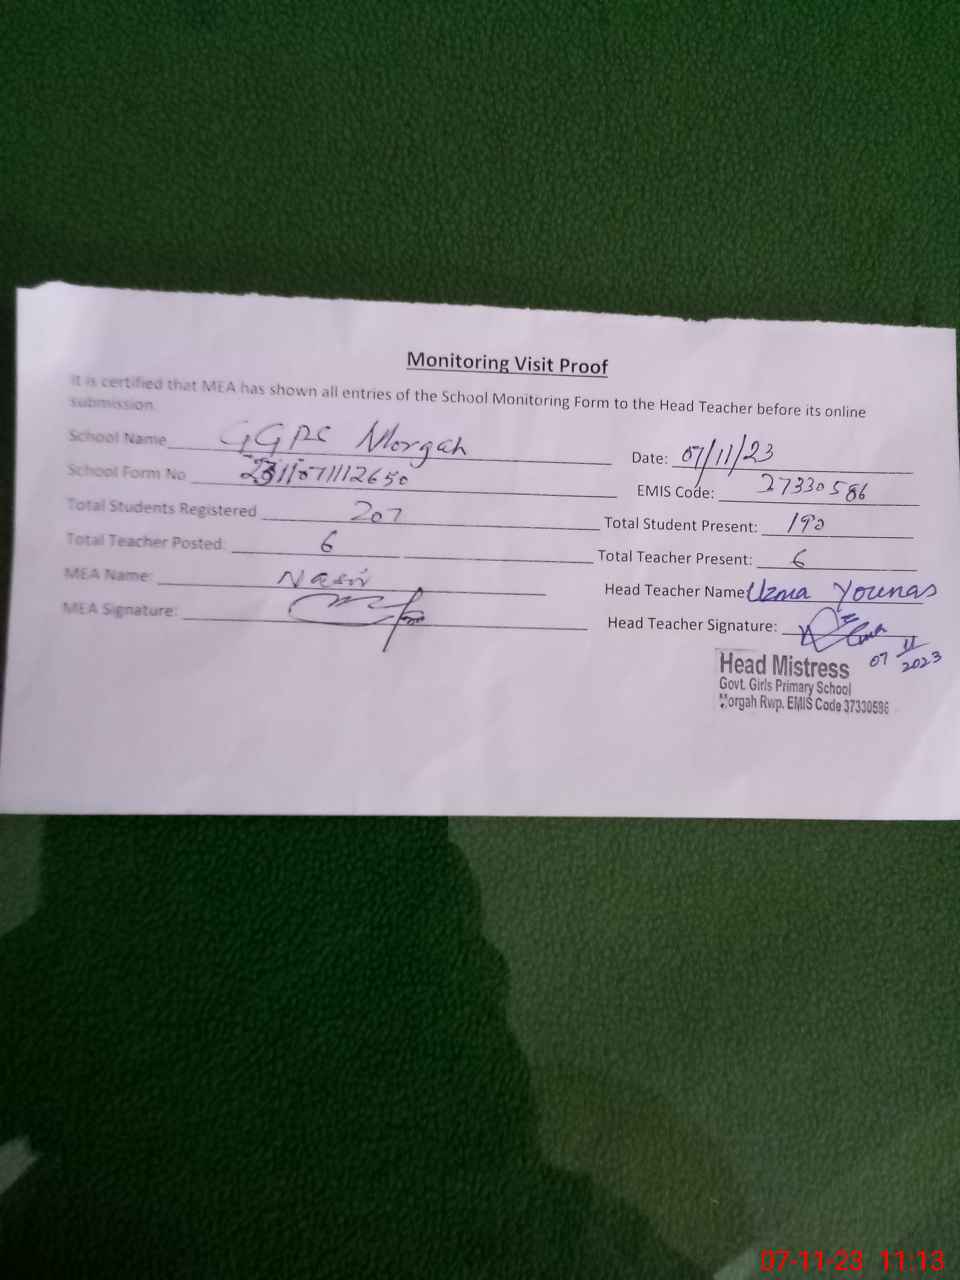 Monitoring Visit Proof
It is certified that MEA has shown all entries of the School Monitoring Form to the Head Teacher before its online
submission.
School Name GGPS Morgah Date: 07/11/23
School Form No EMIS Code: 27330586
Total Students Registered 207 Total Student Present: 190
Total Teacher Posted: 6 Total Teacher Present: 6
MEA Name: Nasir Head Teacher Name Uzma Younas
MEA Signature: Head Teacher Signature:
07 11 2023
Head Mistress
Govt. Girls Primary School
Morgah Rwp. EMIS Code 37330586
07-11-23 11:13